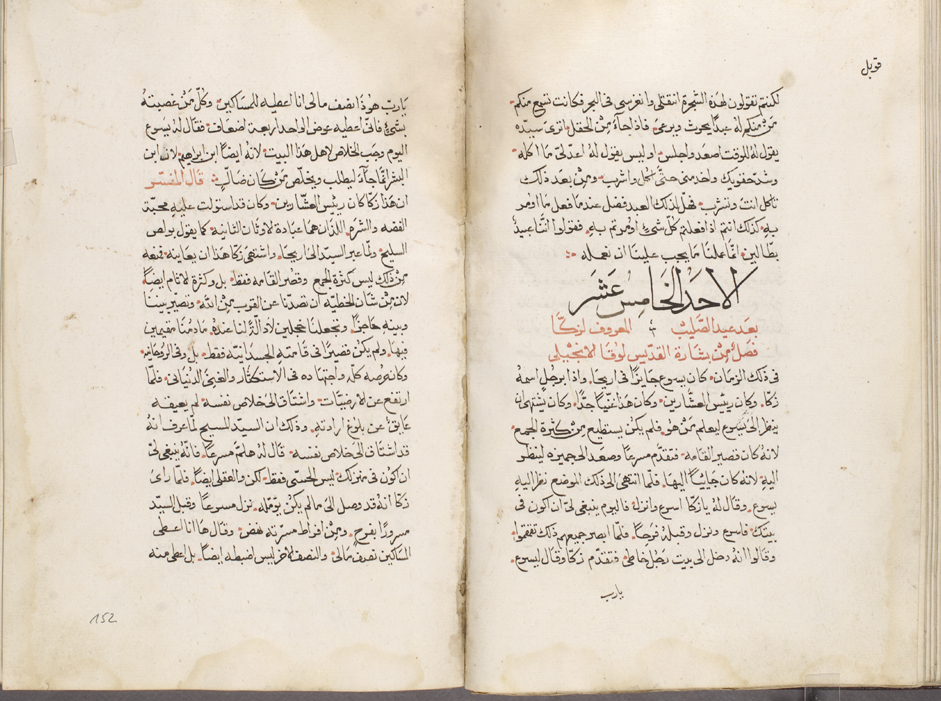 قوبل
لكنتم تقولون لهذه الشجرة انتقلي وانغرسي في البحر فكانت تسمع منكم
مَنْ منكم له عبدًا يحرث ويرعى فاذا جاءَ من الحقل اترى سيّده
يقول له للوقت اصعد واجلس او ليس يقول له اعد لي ما اكله
وشد حقويك واخدمني حتى اكل واشرب ومن بعد ذلك
تاكل انت وتشرب هل لذلك العبد فضل عندما فعل ما اومر
به كذلك انتم اذا فعلتم كل شيء اومرتم به فقولوا انّا عبيدٌ
بطّالين انما علنا ما يجب علينا ان نعمله
الاحد الخامس عشر
بعد عيد الصليب المعروف لزكّا
فصل من بشارة القديس لوقا الانجيلي
في ذلك الزمان كان يسوع جايزًا في اريحا واذا برجلٍ اسمه
زكّا وكان رييس العشّارين وكان هذا غنيًّا جدًّا وكان يشتهي ان
ينظر الى يسوع ليعلم مَن هو فلم يكن يستطيع من كثرة الجمع
لانه كان قصير القامة فتقدّم مسرعًا وصعد الى جميزه لينظر
اليه لانه كان جايئًا اليها فلمّا انتهى الى ذلك الموضع نظر اليه
يسوع وقال له يا زكّا اسرع وانزل فاليوم ينبغي لي ان اكون في
بيتك فاسرع ونزل وقبله فرحًا فلمّا ابصر جميعهم ذلك تقمقموا
وقالوا انه دخل الى بيت رجل خاطئ فتقدّم زكّا وقال ليسوع
يارب
يارب هوذا نصف مالي انا اعطيه للمساكين وكلّ مَن غصبته
بشيءٍ فانّي اعطيه عوض الواحد اربعة اضعاف فقال له يسوع
اليوم وجب الخلاص لاهل هذا البيت لانه ايضًا ابن ابراهيم لان ابن
البشر انّما جاءَ ليطلب ويخلّص مَن كان ضالّ قال المفسّر
ان هذا زكّا كان رييس العشّارين وكان قد استولت عليه محبّة
الفضه والشره اللذان هما عبادة الاوثان الثانية كما يقول بولص
السليح ولمّا عبر السيّد الى اريحا واشتهى زكّا هذا ان يعاينه فمنعه
من ذلك ليس كثرة الجمع وقصر القامه فقط بل وكثرة الاثام ايضًا
لان من شان الخطيّه ان تصدّنا عن القرب من الله وتصير بيننا
وبينه حاجزًا وتجعلنا مخجلين اذ لا لنا عنده ما دمنا مقيمين
فيها ولم يكن قصيرًا في قامته الجسدانيّه فقط بل وفي الروحانيه
وكان حرصه كلّه واجتهاده في الاستكثار والغنى الدنياني فلمّا
ارتفع عن الارضيّات واشتاق الى خلاص نفسه لم يعيقه
عايقٌ عن بلوغ ارادته وذلك ان السيّد المسيح لمّا عرف انه
قد اشتاق الى خلاص نفسه قال له هلم مسرعًا فانّه ينبغي لي
ان اكون في منزلك ليس الحسّي فقط لكن والعقلي ايضًا فلمّا راى
زكّا انه قد وصل الى ما لم يكن يومّله نزل مسرعًا وقبل السيّد
مسرورًا بفرحٍ ومن افراط مسرّته نهض وقال ها انا اعطي
المساكين نصف مالي والنصف الاخر ليس اضبطه ايضًا بل اعطي منه
152